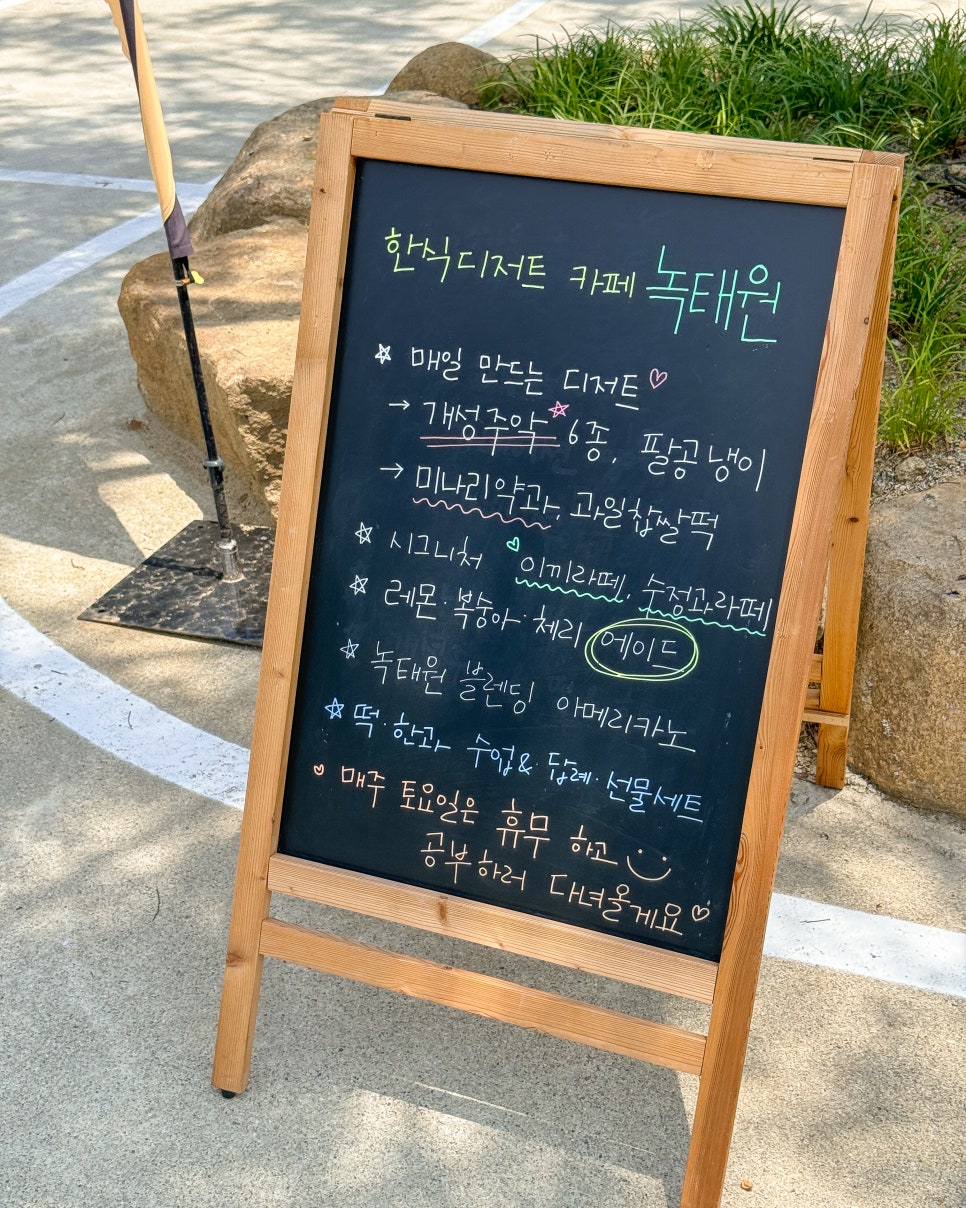 한식디저트 카페 녹태원
☆ 매일 만드는 디저트♡
→ 개성주악☆ 6종, 팔공냉이
→ 미나리약과, 과일찹쌀떡
☆ 시그니처 ♡이끼라떼, 수정과라떼
☆ 레몬·복숭아·체리 에이드
☆ 녹태원 블렌딩 아메리카노
☆ 떡·한과 수업&·답례·선물세트
♡ 매주 토요일은 휴무 하고
공부하러 다녀올게요♡